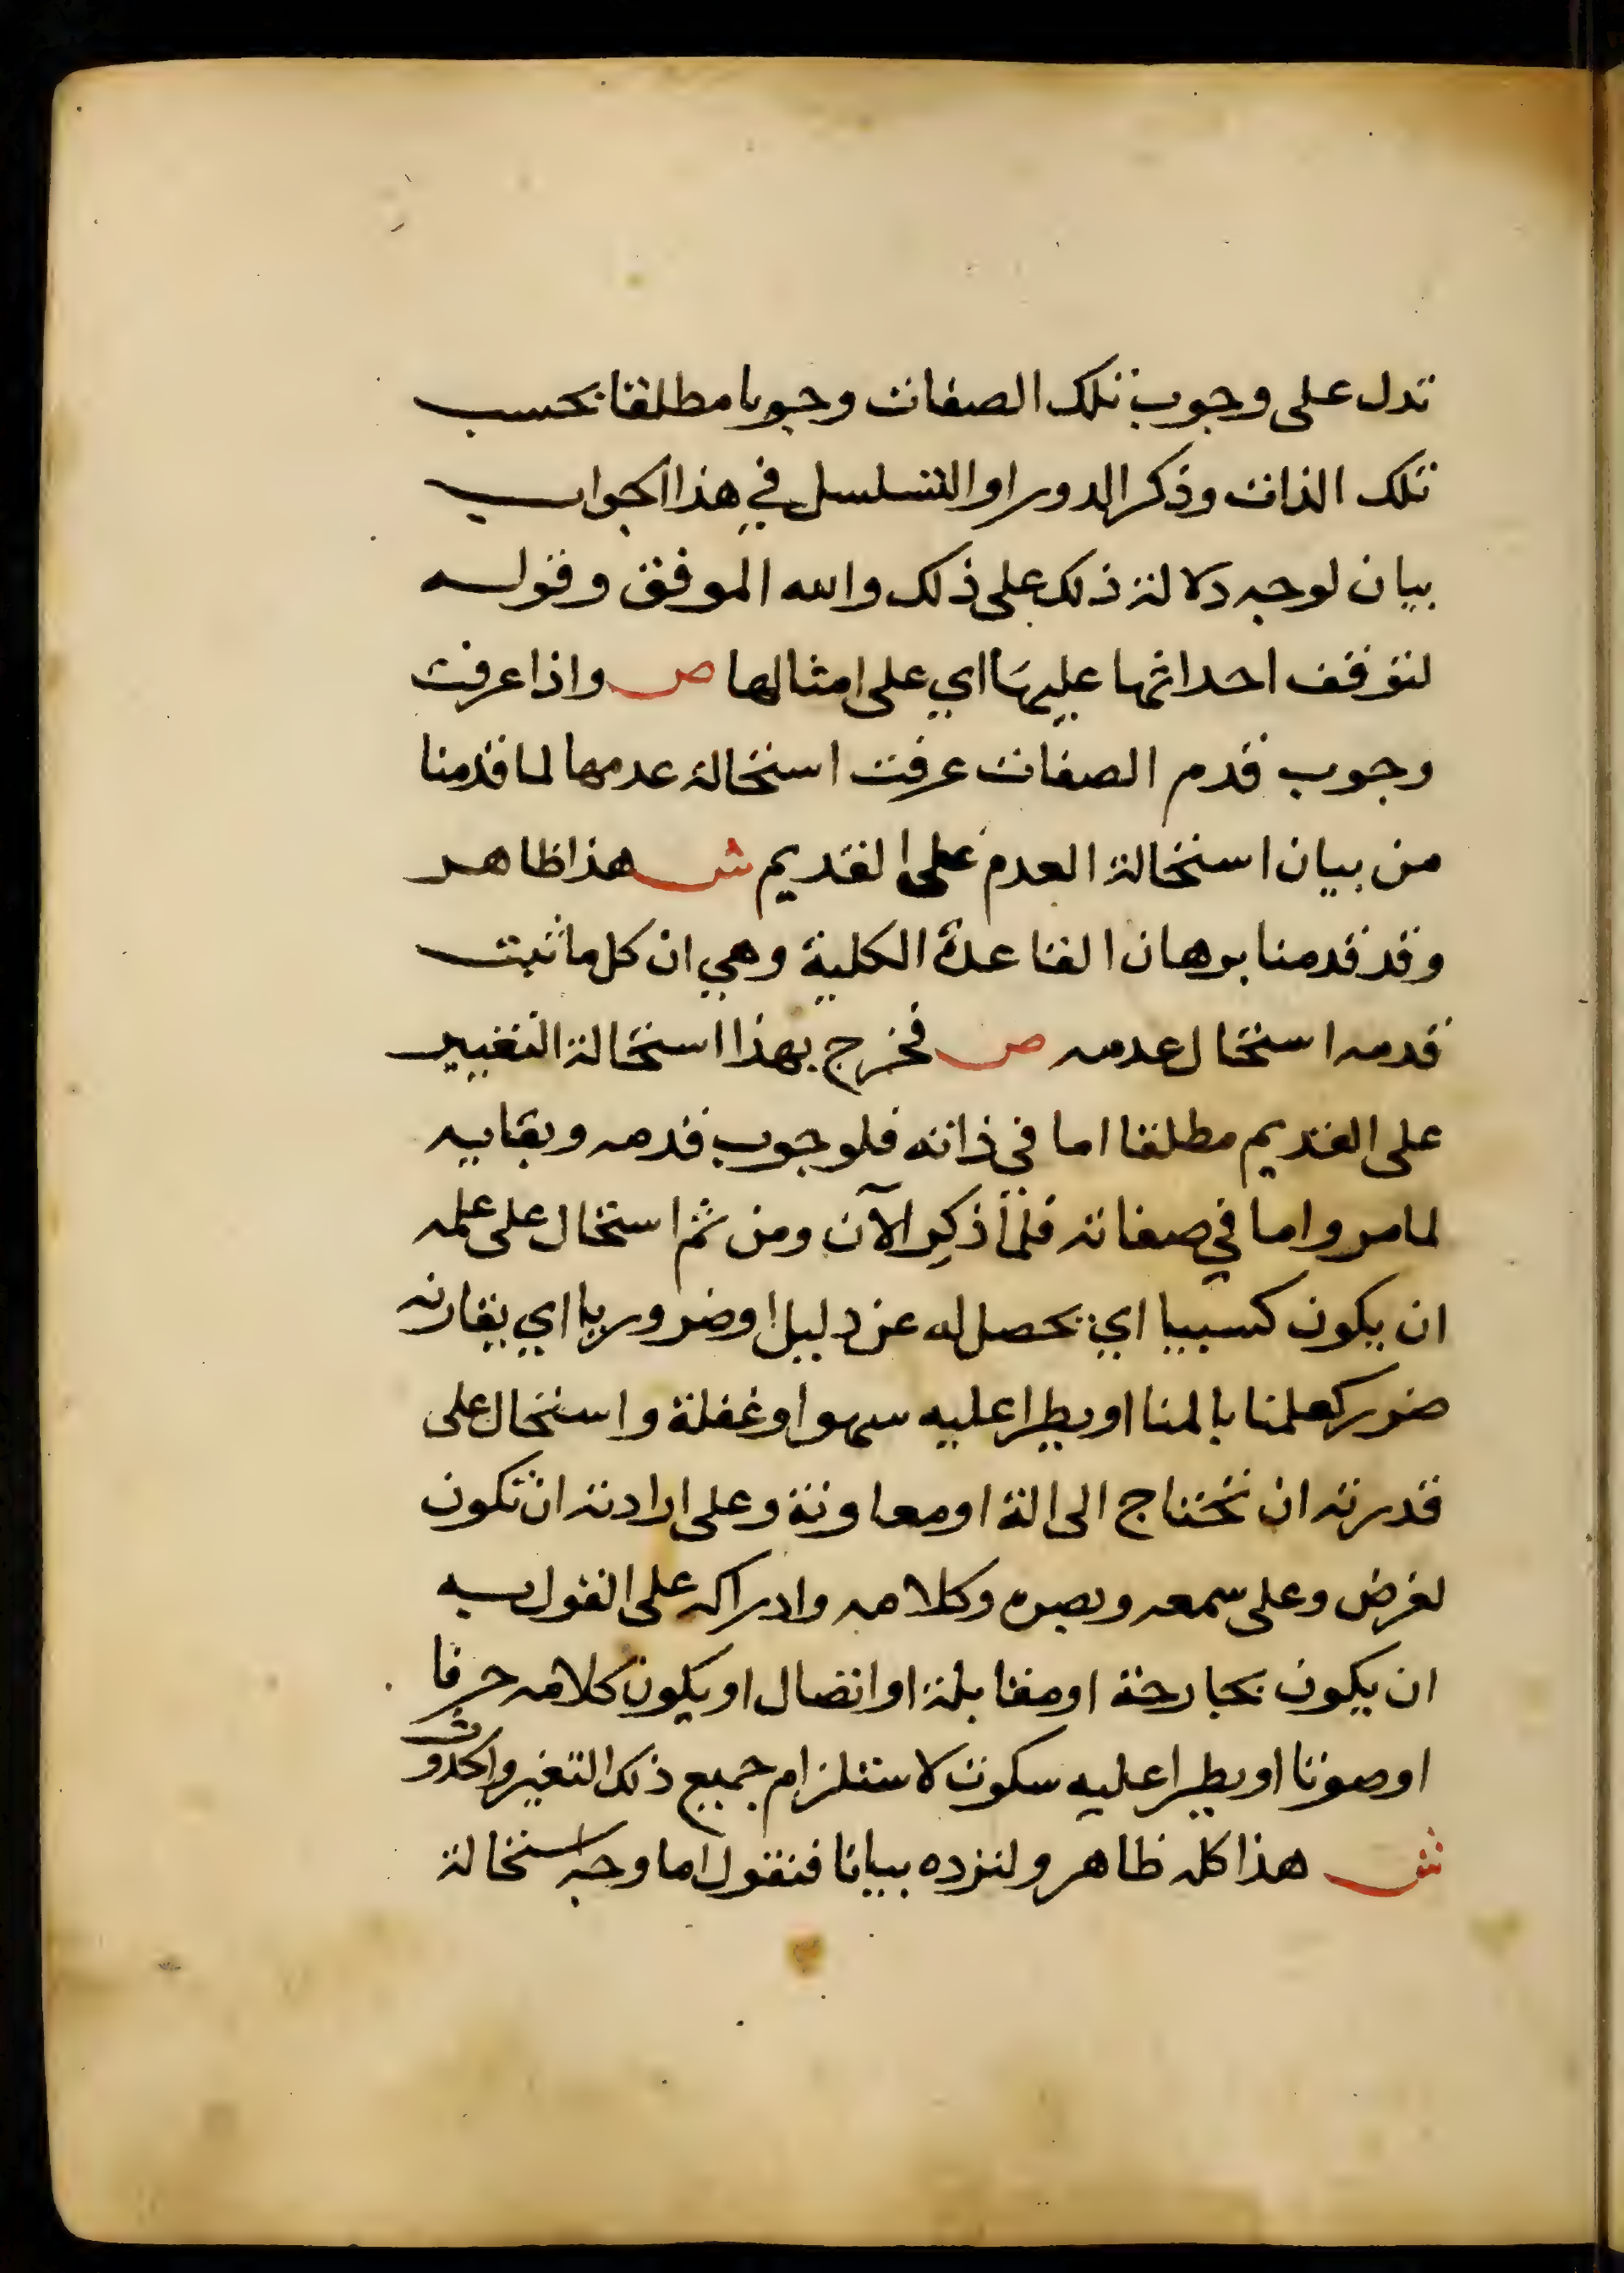 تدل على وجوب تلك الصفات وجوبا مطلقا بحسب
تلك الذات وذكر الدور او التسلسل في هذا الجواب
بيان لوجه دلالة ذلك على ذلك والله الموفق وقوله
لتوقف احداثها عليها اي على امثالها ص واذا عرفت
وجوب قدم الصفات عرفت استحالة عدمها لما قدمنا
من بيان استحالة العدم على القديم ش هذا ظاهر
وقد قدمنا برهان القاعدة الكلية وهي ان كل ما ثبت
قدمه استحال عدمه ص فخرج بهذا استحالة التغيير
على القديم مطلقا اما في ذاته فلوجوب قدمه وبقايه
لما مر واما في صفاته فلما ذكر الآن ومن ثم استحال على علمه
ان يكون كسبيا اي يحصل له عن دليل او ضروريا اي يقارنه
ضرر كعلمنا بالمنا او يطرا عليه سهو او غفلة واستحال على
قدرته ان تحتاج الى الة او معاونة وعلى ارادته ان تكون
لغرض وعلى سمعه وبصره وكلامه وادراكه على القول به
ان يكون بجارحة او مقابلة او اتصال او يكون كلامه حرفا
او صوتا او يطرا عليه سكوت لاستلزام جميع ذلك التغير والحدوث
ش هذا كله ظاهر ولنزده بيانا فنقول اما وجه استحالة